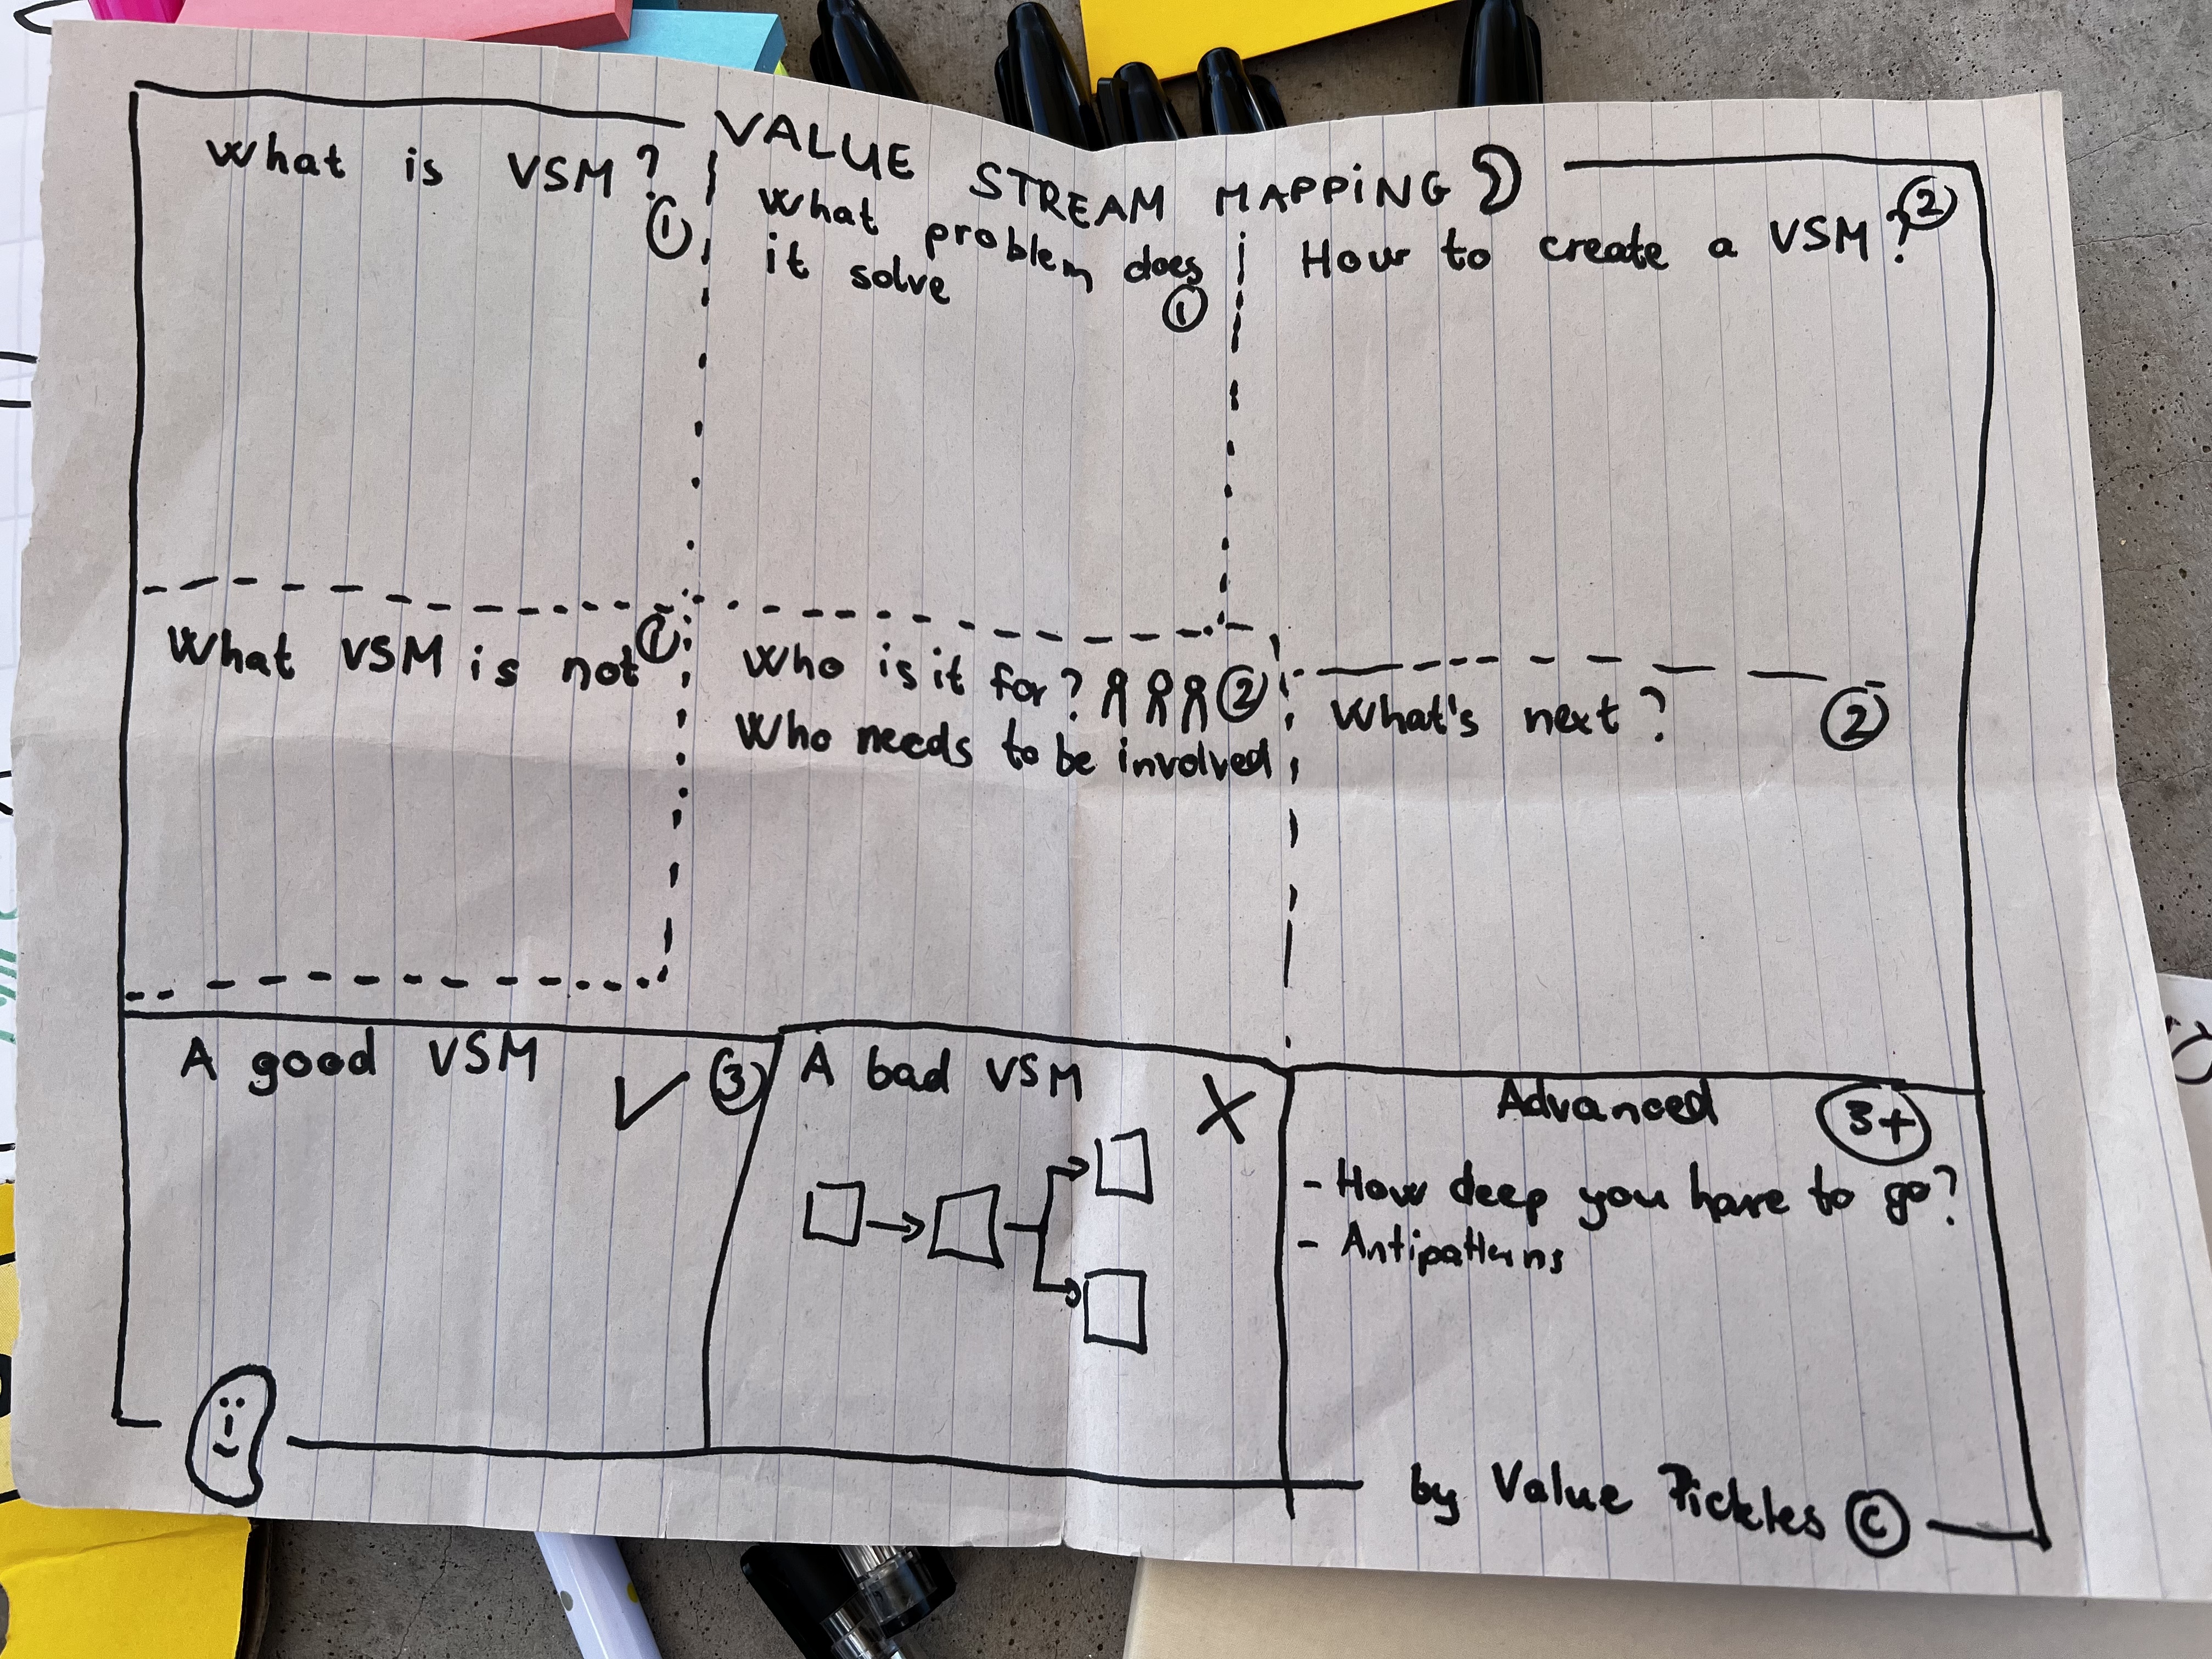 VALUE STREAM MAPPING
What is VSM?
①
What problem does
it solve
①
②
How to create a VSM?
What VSM is not ①
Who is it for? ②
Who needs to be involved
What's next? ②
A good VSM
✓ ③
A bad VSM
X
Advanced
3+
- How deep you have to go?
- Antipatterns
by Value Pickles ©